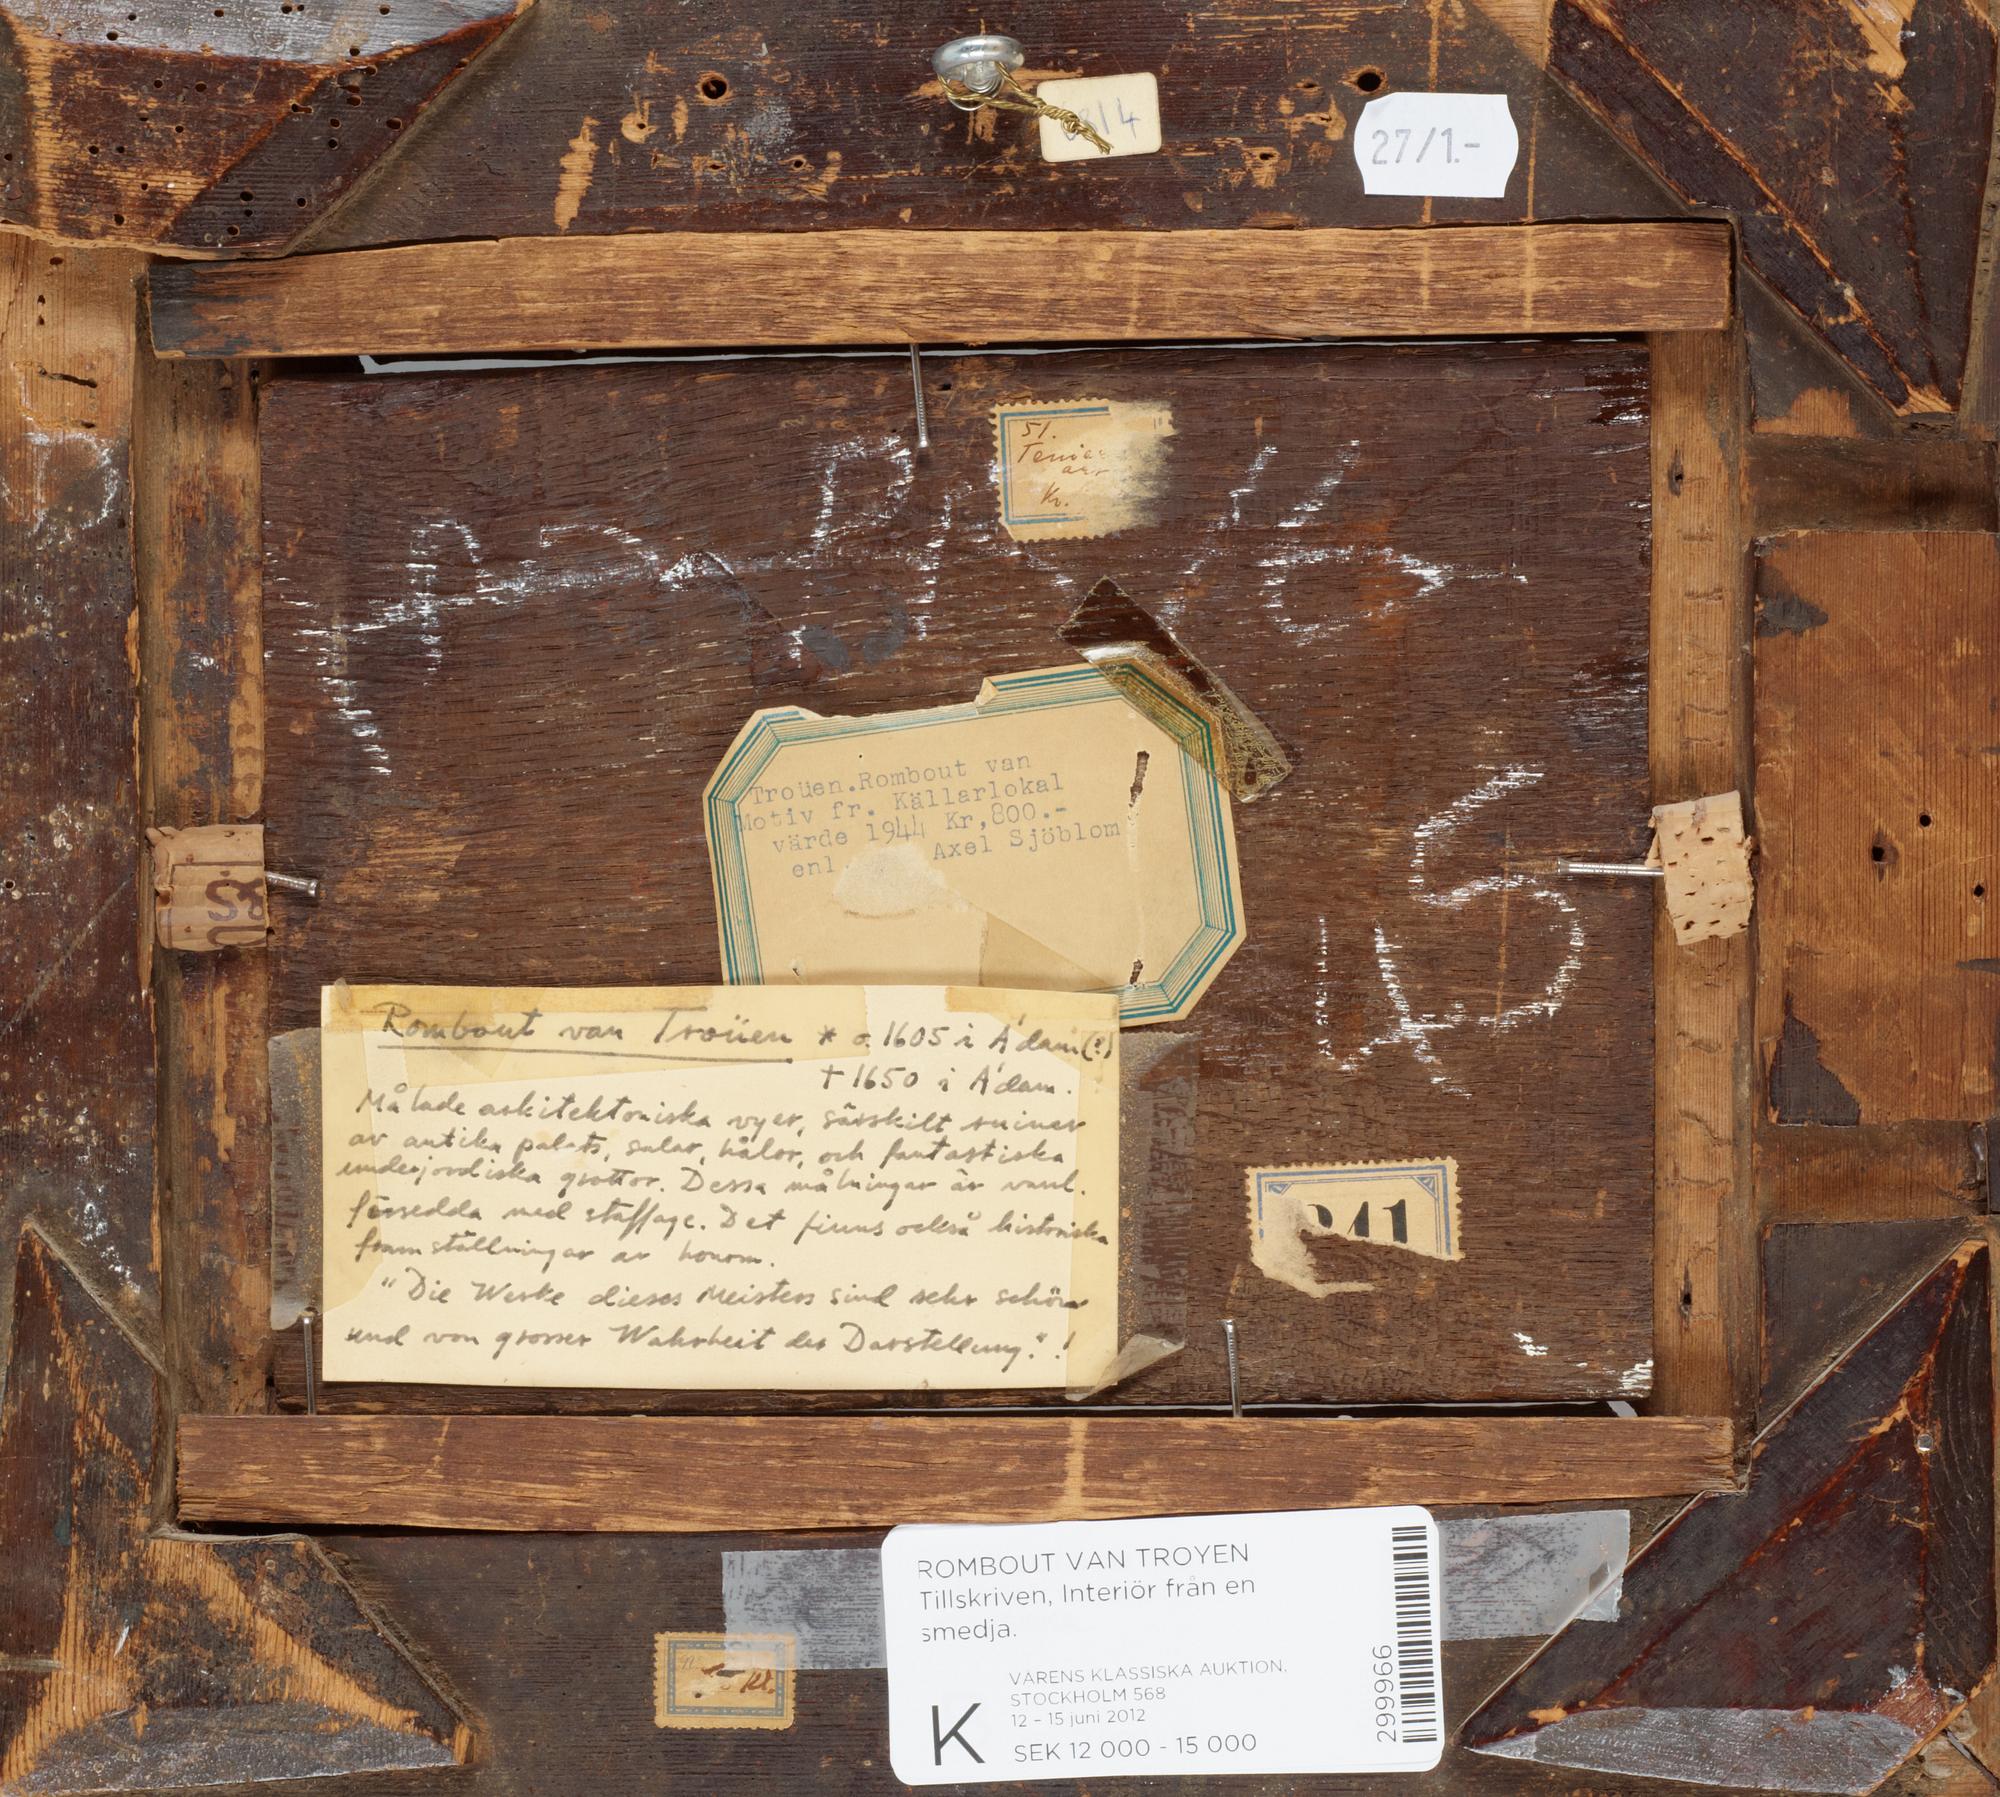 27/1.-
51.
Kr.
Troüen.Rombout van
Motiv fr. Källarlokal
värde 1944 Kr,800.-
enl Axel Sjöblom
Rombout van Troüen * o. 1605 i A'dam (?)
† 1650 i A'dam.
Målade arkitektoniska vyer, särskilt ruiner
av antika palats, salar, hålor, och fantastiska
underjordiska grottor. Dessa målningar är vanl.
försedda med staffage. Det finns också historiska
framställningar av honom.
"Die Werke dieses Meisters sind sehr schön
und von grosser Wahrheit der Darstellung."!
241
ROMBOUT VAN TROYEN
Tillskriven, Interiör från en
smedja.
VÅRENS KLASSISKA AUKTION,
STOCKHOLM 568
12 – 15 juni 2012
K SEK 12 000 - 15 000
299966